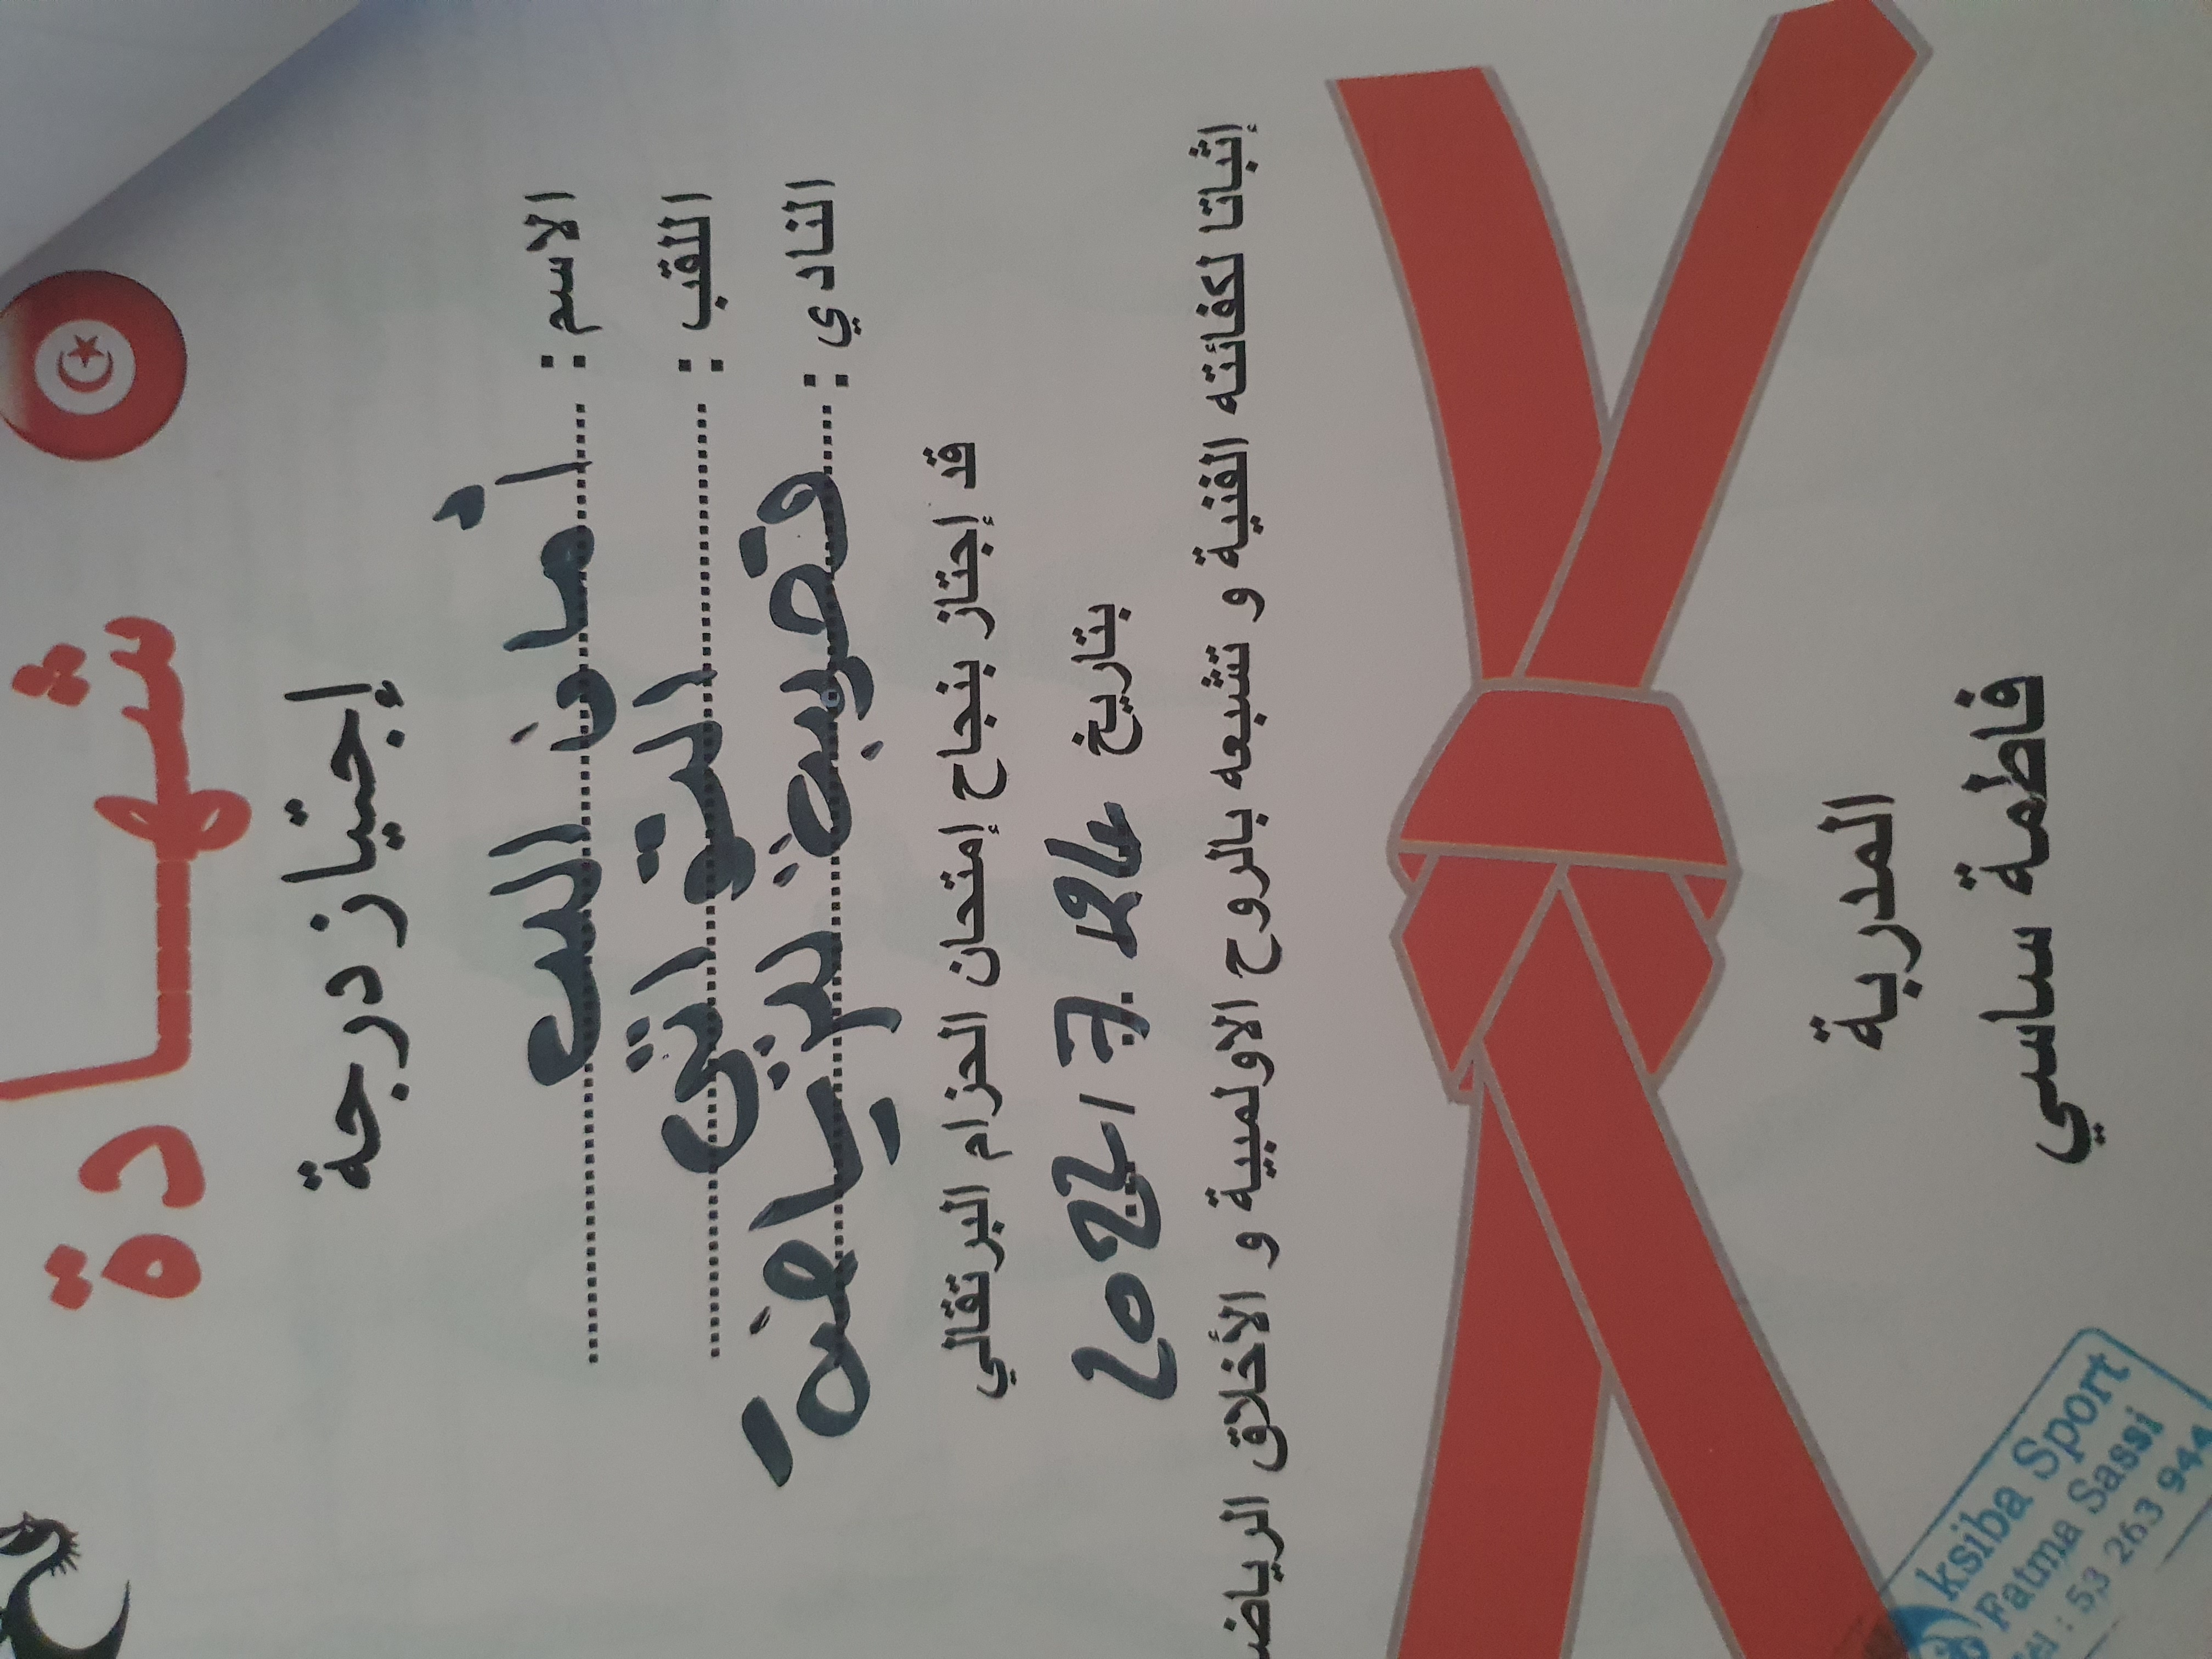 شهادة
إجتياز درجة
الاسم : أمان الله
اللقب :
النادي : قصيبة الرياضة
قد إجتاز بنجاح إمتحان الحزام البرتقالي
بتاريخ
إثباتا لكفائته الفنية و تشبعه بالروح الاولمبية و الأخلاق الرياض
المدربة
فاطمة ساسي
ksiba Sport
Fatma Sassi
Tél : 53 263 944